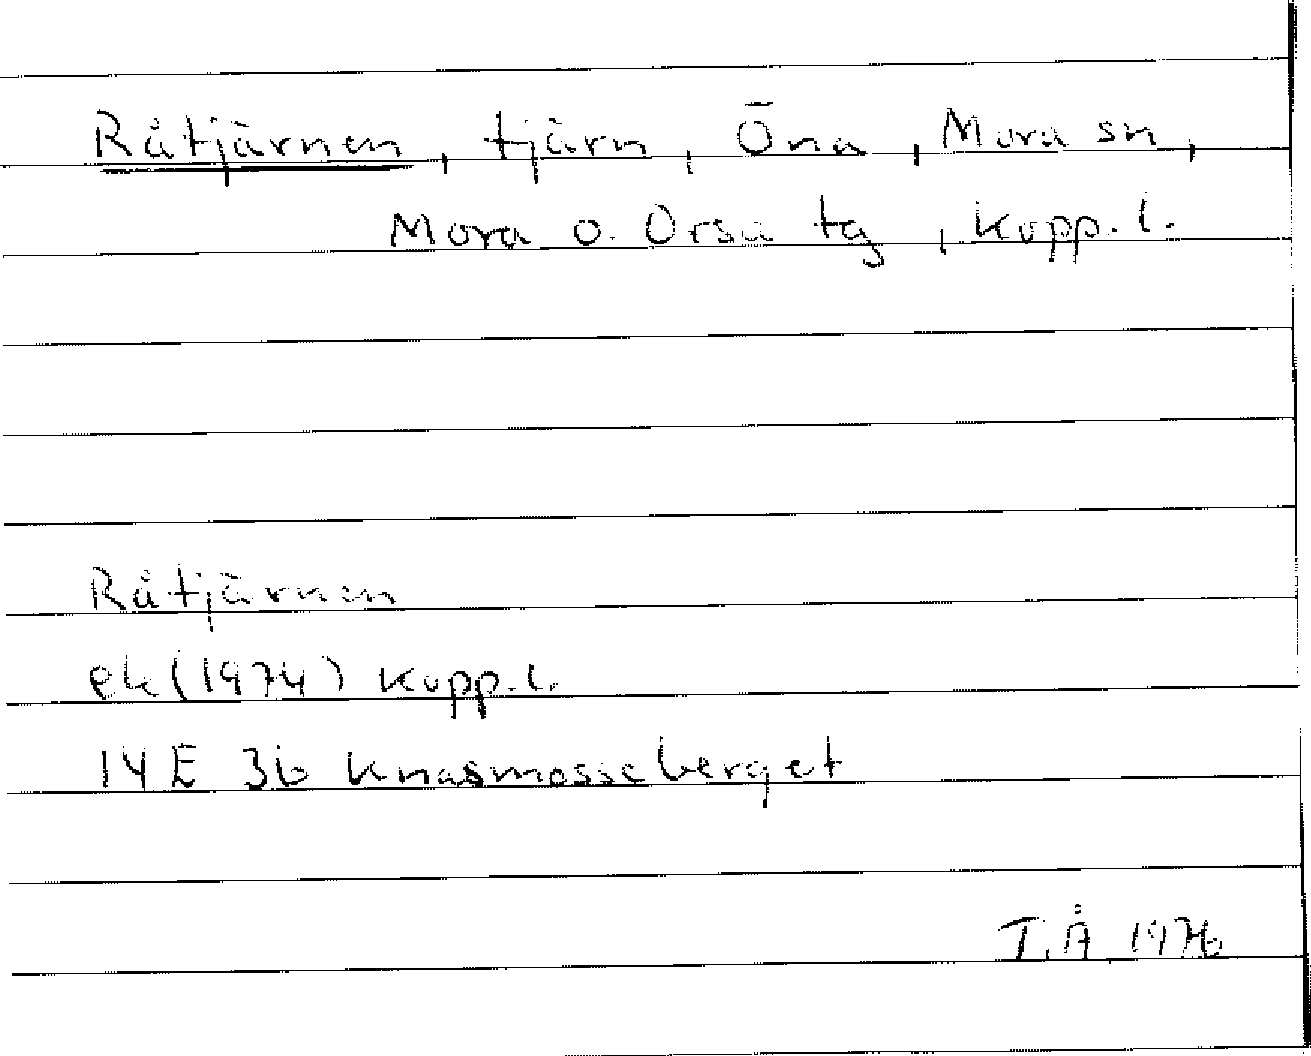 Råtjärnen, tjärn, Öna, Mora sn,
Mora o. Orsa tg, Kopp. l.
Råtjärnen
ek (1974) Kopp. l.
14E 3b Knasmosseberget
I.Å 1976